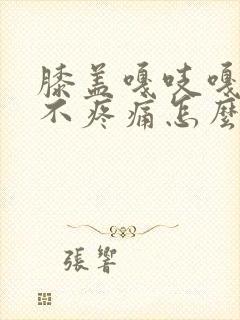 膝盖嘎吱嘎
不疼痛怎麼
张響